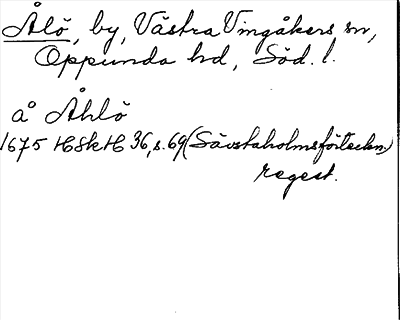 Ålö, by, Västra Vingåkers sn,
Oppunda hd, Söd. l.
å Åhlö
1675 HSkH 36, s. 69 (Sävstaholmsförteckn.)
regest.